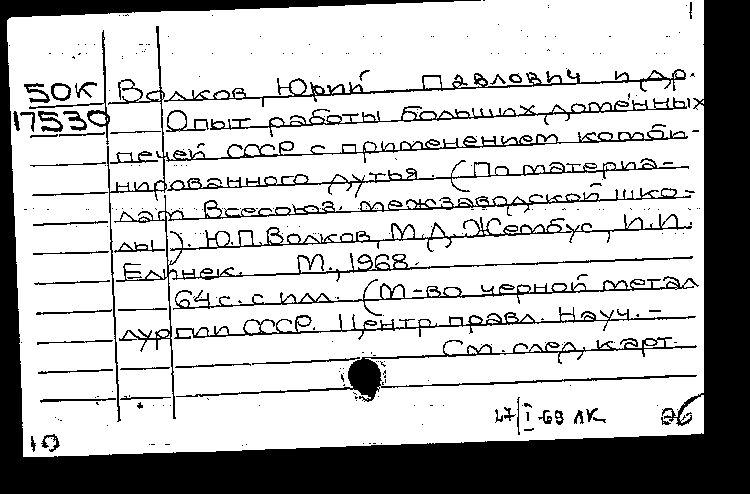 50К Волков, Юрий Павлович и др.
17530 Опыт работы больших доменных
печей СССР с применением комби-
нированного дутья. (По материа-
лам Всесоюз. межзаводской шко-
лы). Ю.П.Волков, М.Д.Жембус, И.И.
Елинек. М., 1968.
64 с. с илл. (М-во черной метал
лургии СССР. Центр. правл. Науч.-
См. след. карт.
27/I-69 ЛК
10